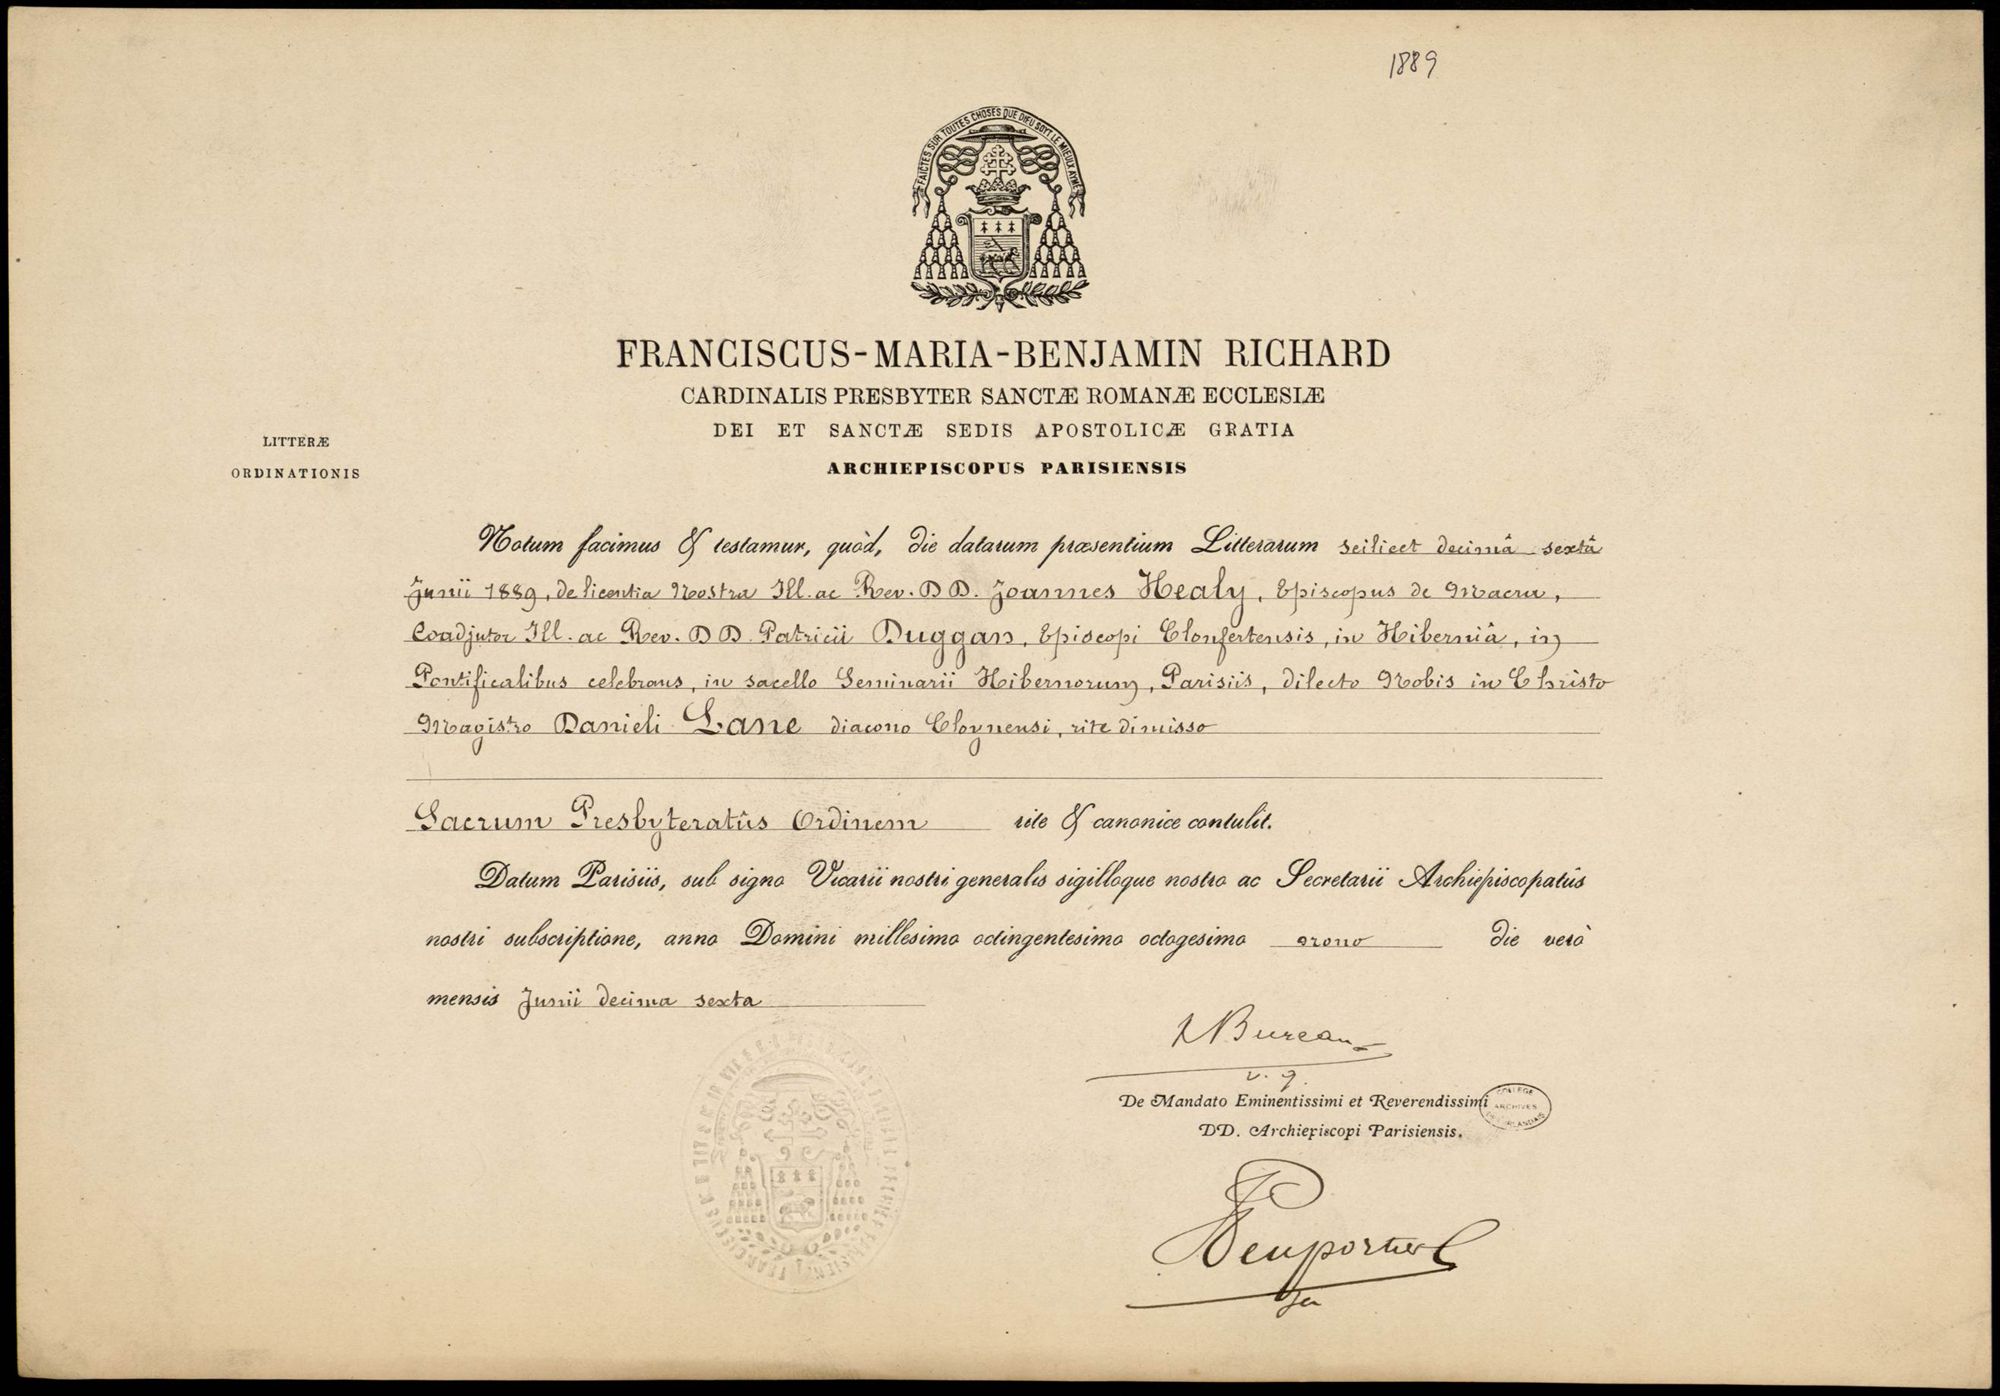 1889
FAICTES SUR TOUTES CHOSES QUE DIEU SOYT LE MIEUX AYMÉ
FRANCISCUS-MARIA-BENJAMIN RICHARD
CARDINALIS PRESBYTER SANCTÆ ROMANÆ ECCLESIÆ
DEI ET SANCTÆ SEDIS APOSTOLICÆ GRATIA
ARCHIEPISCOPUS PARISIENSIS
LITTERÆ
ORDINATIONIS
Notum facimus & testamur, quòd, die datarum præsentium Litterarum scilicet decimâ sextâ
Junii 1889, de licentia Nostra Ill. ac Rev. DD. Joannes Healy, Episcopus de Macra,
Coadjutor Ill. ac Rev. DD. Patricii Duggan, Episcopi Clonfertensis, in Hiberniâ, in
Pontificalibus celebrans, in sacello Seminarii Hibernorum, Parisiis, dilecto Nobis in Christo
Magistro Danieli Lane diacono Cloynensi, rite dimisso
Sacrum Presbyteratûs Ordinem rite & canonice contulit.
Datum Parisiis, sub signo Vicarii nostri generalis sigilloque nostro ac Secretarii Archiepiscopatûs
nostri subscriptione, anno Domini millesimo octingentesimo octogesimo nono die verò
mensis Junii decima sexta
Bureau
v. g.
De Mandato Eminentissimi et Reverendissimi
DD. Archiepiscopi Parisiensis.
COLLEGE
ARCHIVES
DES IRLANDAIS